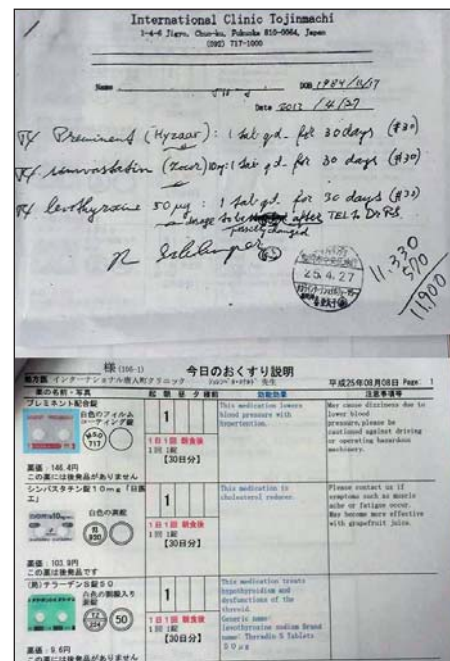 International Clinic Tojinmachi
1-4-6 Jigyo, Chuo-ku, Fukuoka 810-0064, Japan
(092) 717-1000
Name
DOB 1984/11/17
Date 2013 /4/27
Preminent (Hyzaar): 1 tab qd. for 30 days (#30)
simvastatin (Zocor) 10mg: 1 tab qd. for 30 days (#30)
levothyroxine 50 μg : 1 tab qd. for 30 days (#30)
after TEL to Dr RS
25.4.27
11,330
570
11,900
様(106-1) 今日のおくすり説明
処方医 インターナショナル唐人町クリニック 先生 平成25年08月08日 Page 1
薬の名前・写真 起 朝 昼 夕 寝前 効能効果 注意事項等
プレミネント配合錠
白色のフィルム
コーティング錠
717
1
1日1回 朝食後
1回 1錠
【30日分】
This medication lowers
blood pressure with
hypertention.
May cause dizziness due to
lower blood
pressure,please be
cautioned against driving
or operating hazardous
machinery.
薬価：146.4円
この薬には後発品がありません
シンバスタチン錠10mg「日医
工」
白色の裸錠
1
1日1回 朝食後
1回 1錠
【30日分】
This medication is
cholesterol reducer.
Please contact us if
symptoms such as muscle
ache or fatigue occur.
May become more effective
with grapefruit juice.
薬価：103.9円
この薬は後発品です
(局)チラーヂンS錠50
白色の割線入り
裸錠
50
1
1日1回 朝食後
1回 1錠
【30日分】
This medication treats
hypothyroidism and
dysfunctions of the
thyroid.
Generic name:
levothyroxine sodium Brand
name: Thyradin S Tablets
50μg
薬価：9.6円
この薬には後発品がありません